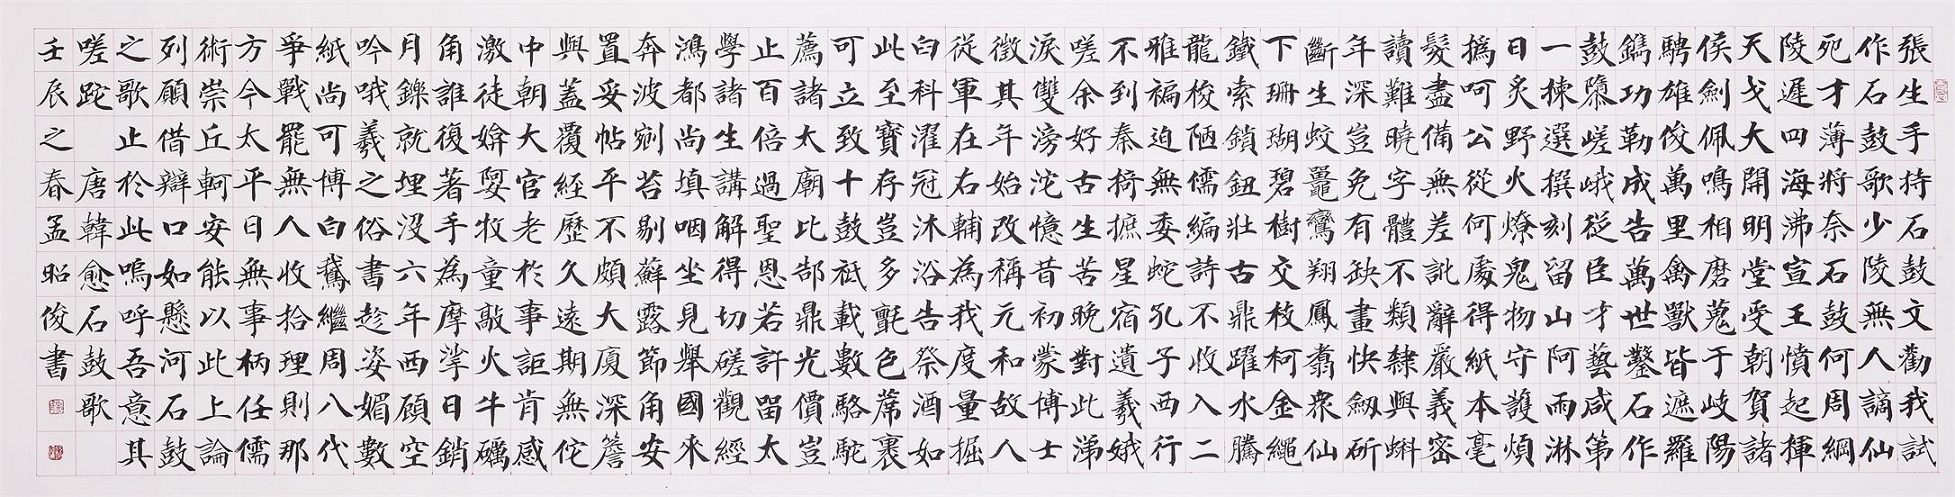 張生手持石鼓文勸我試
作石鼓歌少陵無人謫仙
死才薄將奈石鼓何周綱
陵遲四海沸宣王憤起揮
天戈大開明堂受朝賀諸
侯劍佩鳴相磨蒐于岐陽
騁雄俊萬里禽獸皆遮羅
鐫功勒成告萬世鑿石作
鼓隳嵯峨從臣才藝咸第
一揀選撰刻留山阿雨淋
日炙野火燎鬼物守護煩
撝呵公從何處得紙本毫
髮盡備無差訛辭嚴義密
讀難曉字體不類隸與蝌
年深豈免有缺畫快劒斫
斷生蛟鼉鸞翔鳳翥眾仙
下珊瑚碧樹交枝柯金繩
鐵索鎖鈕壯古鼎躍水騰
龍梭陋儒編詩不收入二
雅褊迫無委蛇孔子西行
不到秦掎摭星宿遺羲娥
嗟余好古生苦晚對此涕
淚雙滂沱憶昔初蒙博士
徵其年始改稱元和故人
從軍在右輔為我度量掘
臼科濯冠沐浴告祭酒如
此至寶存豈多氈包席裹
可立致十鼓祗載數駱駝
薦諸太廟比郜鼎光價豈
止百倍過聖恩若許留太
學諸生講解得切磋觀經
鴻都尚填咽坐見舉國來
奔波剜苔剔蘚露節角安
置妥帖平不頗大廈深簷
與蓋覆經歷久遠期無佗
中朝大官老於事詎肯感
激徒媕婀牧童敲火牛礪
角誰復著手為摩挲日銷
月鑠就埋沒六年西顧空
吟哦羲之俗書趁姿媚數
紙尚可博白鵝繼周八代
爭戰罷無人收拾理則那
方今太平日無事柄任儒
術崇丘軻安能以此上論
列願借辯口如懸河石鼓
之歌止於此嗚呼吾意其
嗟跎 唐韓愈石鼓歌
壬辰之春孟昭俊書